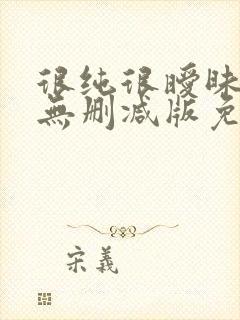 很纯很暧昧
無删减版免
宋義